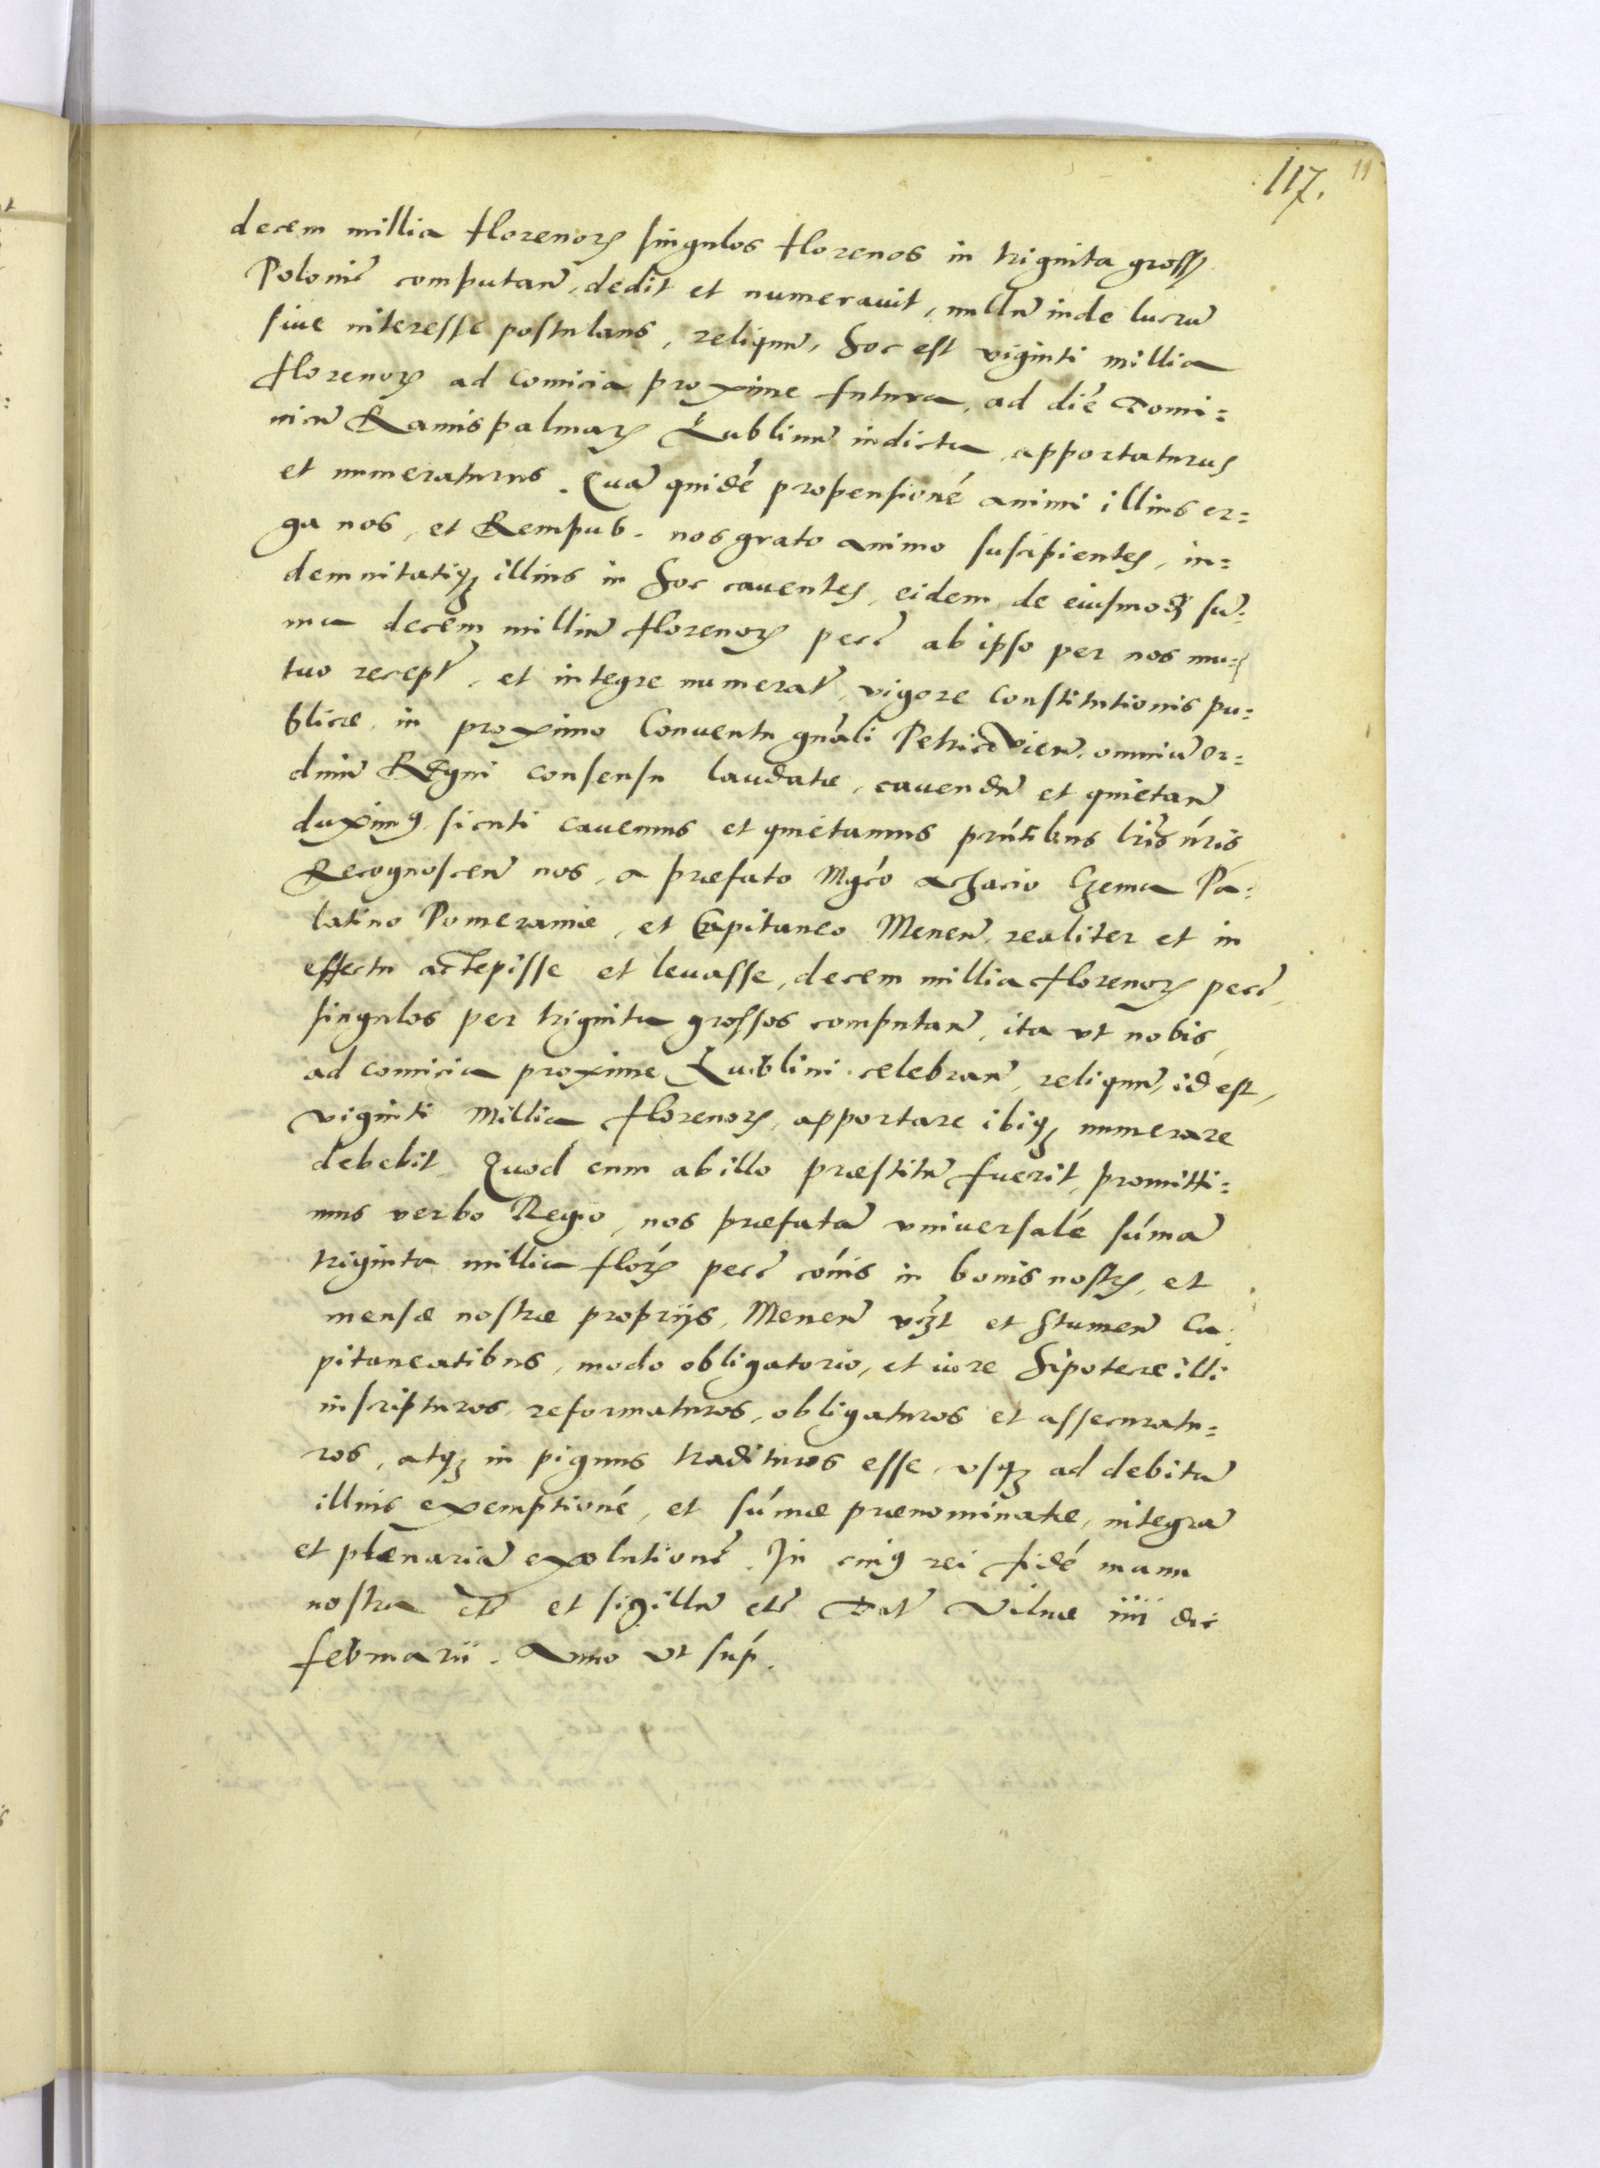 117. 11
decem millia florenorꝝ singulos florenos in triginta gross
Poloniē computan̄, dedit et numerauit, nullū inde lucrū
siue interesse postulans, reliquū, hoc est viginti millia
florenorꝝ ad comicia proxime futura, ad diē Domi=
nicū Ramispalmarꝝ Lublinū indicta, apportaturus
et numeraturus. Quā quidē propensionē animi illius er=
ga nos, et Rempub. nos grato animo suscipientes, in=
demnitatiqꝫ illius in hoc cauentes, eidem de eiusmodi sū=
ma decem milliū florenorꝝ pecc̄ ab ipso per nos mu=
tuo recept̄, et integre numerat̄, vigore Constitutionis pu=
blicæ in proximo Conuentu gnāli Petricouien̄. omniū or=
dinū Regni consensu laudatæ, cauendū et quietan̄
duximꝰ sicuti cauemus et quietamus prn̄tibus lrīs nr̄is
Recognoscen̄ nos, a præfato Mgcō Achacio Czema Pa=
latino Pomeraniæ, et Capitaneo Meuen̄. realiter et in
effectu accepisse et leuasse, decem millia florenorꝝ pecc̄,
singulos per triginta grossos computan̄, ita vt nobis,
ad comicia proxime Lublini celebran̄, reliquū, id est,
viginti Millia florenorꝝ, apportare ibiqꝫ numerare
debebit. Quod cum ab illo præstitū fuerit, promitti=
mus verbo Regio, nos præfatā vniuersalē sūmā
triginta millia florꝝ pecc̄ cōīs in bonis nostris, et
mensæ nostræ proprijs, Meuen̄ vꝫt et Stumen̄ Ca=
pitaneatibus, modo obligatorio, et iure hipotecæ illi
inscripturos, reformaturos, obligaturos et assecuratu=
ros, atqꝫ in pignus tradituros esse, vsqꝫ ad debitā
illius exemptionē, et sūmæ prænominatæ, integrā
et plænariā exolutionē. In cuiꝰ rei fidē manu
nostra etc̄ et sigillū etc̄ Dat̄ Vilnæ iiii die
februarii. Anno vt sup̄.